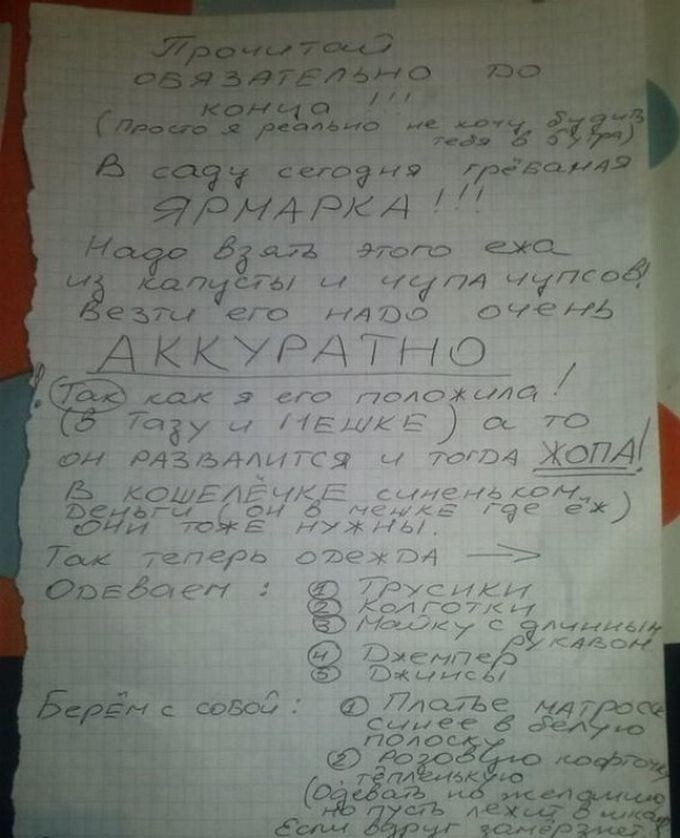 Прочитай
ОБЯЗАТЕЛЬНО ДО
КОНЦА !!!
(Просто я реально не хочу будить
тебя в 5 утра)
В саду сегодня грёбаная
ЯРМАРКА!!!
Надо взять этого ежа
из капусты и чупа чупсов!
Везти его НАДО ОЧЕНЬ
АККУРАТНО
! Так как я его положила!
(В ТАЗУ и МЕШКЕ) а то
ОН РАЗВАЛИТСЯ и тогда ЖОПА!
В КОШЕЛЁЧКЕ синеньком
Деньги (он в мешке где ёж)
Они тоже нужны.
Так теперь одежда →
Одеваем: ① Трусики
② Колготки
③ Майку с длинным
рукавом
④ Джемпер
⑤ Джинсы
Берём с собой: ① Платье матросс
синее в белую
полоску
② розовую кофточку
тёпленькую
(Одевать по желанию
но пусть лежит в шкаф
Если вдруг замёрзнет